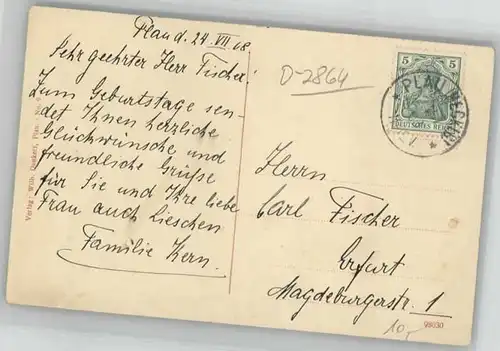 Plau d. 24 VII 08.
Sehr geehrter Herr Fischer!
Zum Geburtstage sen-
det Ihnen herzliche
Glückwünsche und
freundliche Grüße
für Sie und Ihre liebe
Frau auch Lieschen
Familie Kern.
D-2864
5 5
DEUTSCHES REICH
PLAU (MECKLB)
Herrn
Carl Fischer
Erfurt
Magdeburgerstr. 1
10,-
98030
Verlag: Wilh. Plau. No.